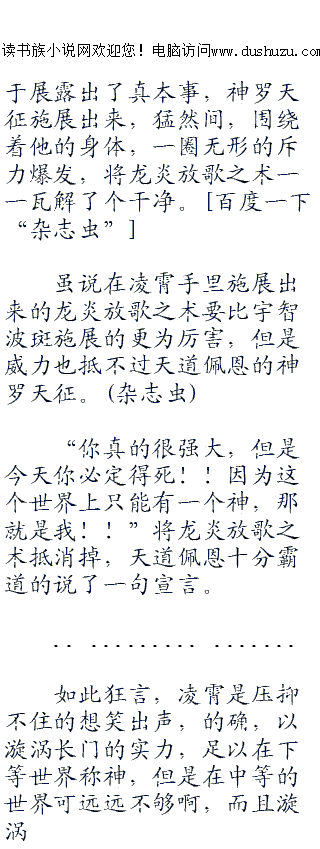 读书族小说网欢迎您！电脑访问www.dushuzu.com
于展露出了真本事，神罗天
征施展出来，猛然间，围绕
着他的身体，一圈无形的斥
力爆发，将龙炎放歌之术一
一瓦解了个干净。[百度一下
“杂志虫”]
虽说在凌霄手里施展出
来的龙炎放歌之术要比宇智
波斑施展的更为厉害，但是
威力也抵不过天道佩恩的神
罗天征。(杂志虫)
“你真的很强大，但是
今天你必定得死！！因为这
个世界上只能有一个神，那
就是我！！”将龙炎放歌之
术抵消掉，天道佩恩十分霸
道的说了一句宣言。
·· ········· ·······
如此狂言，凌霄是压抑
不住的想笑出声，的确，以
漩涡长门的实力，足以在下
等世界称神，但是在中等的
世界可远远不够啊，而且漩
涡